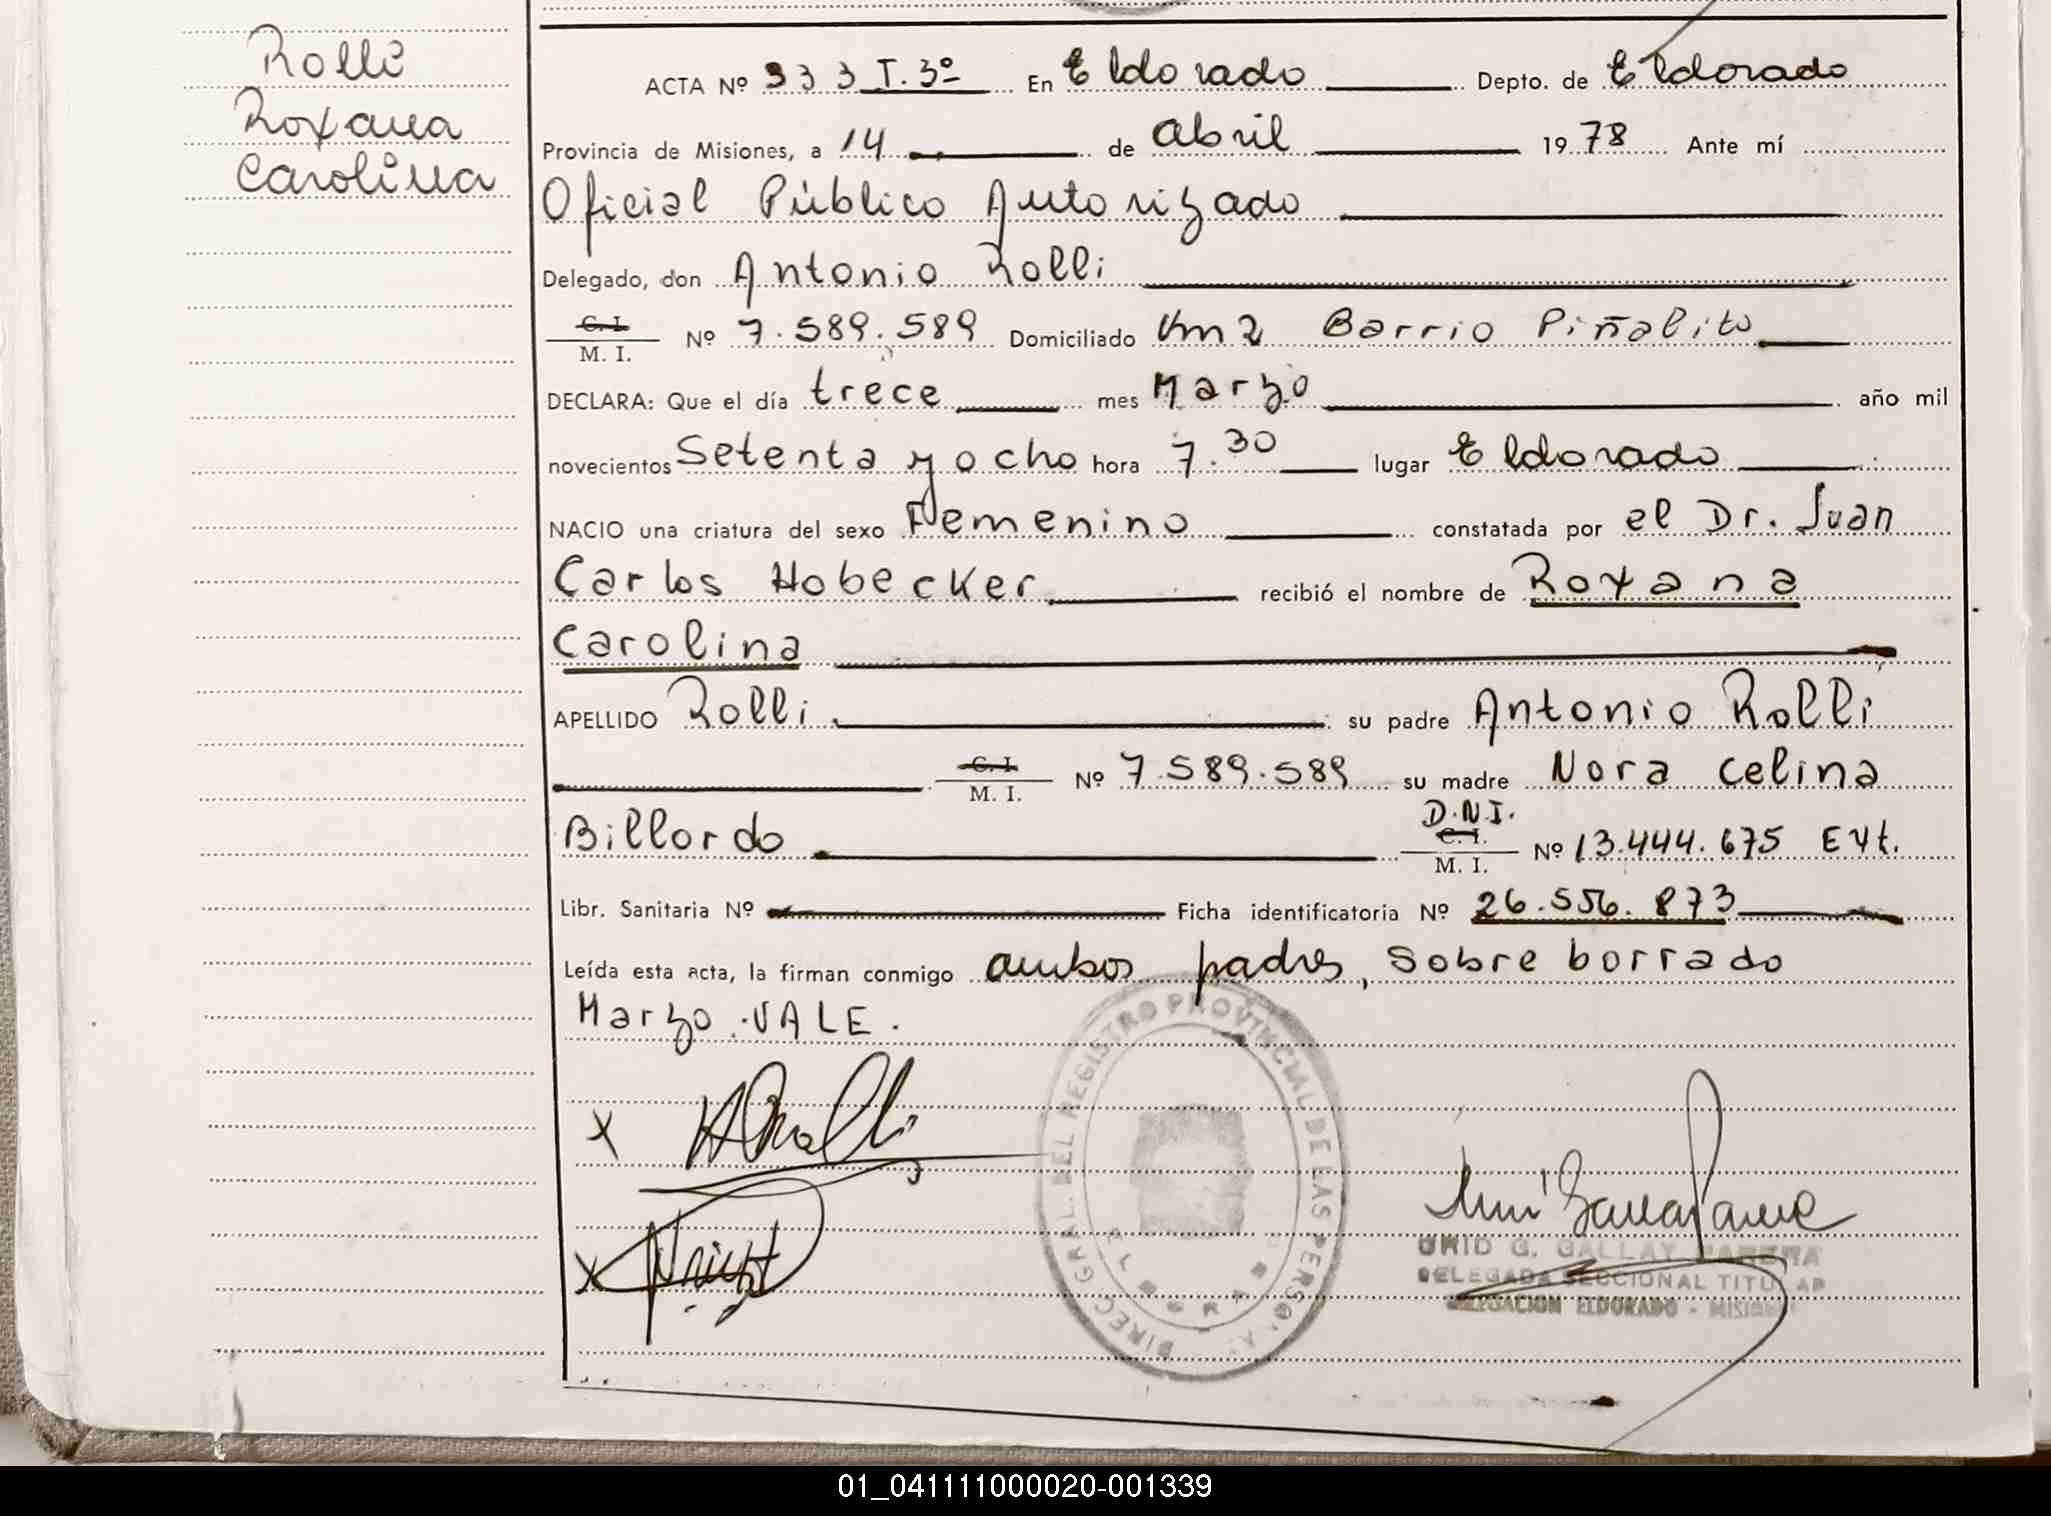 Rolli
Roxana
Carolina
ACTA Nº 933 T. 3º En Eldorado Depto. de Eldorado
Provincia de Misiones, a 14 de abril 1978 Ante mí
Oficial Público Autorizado
Delegado, don Antonio Rolli
C. I. / M. I. Nº 7.589.589 Domiciliado Km 2 Barrio Piñalito
DECLARA: Que el día trece mes Marzo año mil
novecientos Setenta y ocho hora 7.30 lugar Eldorado
NACIO una criatura del sexo Femenino constatada por el Dr. Juan
Carlos Hobecker recibió el nombre de Roxana
Carolina
APELLIDO Rolli su padre Antonio Rolli
C. I. / M. I. Nº 7.589.589 su madre Nora Celina
Billordo D.N.I. C. I. / M. I. Nº 13.444.675 Ext.
Libr. Sanitaria Nº Ficha identificatoria Nº 26.556.873
Leída esta acta, la firman conmigo ambos padres, sobre borrado
Marzo. VALE.
x ARolli
x
DIRECC. GRAL. DEL REGISTRO PROVINCIAL DE LAS PERSONAS
G. GALLAY PARERA
DELEGADA SECCIONAL TITULAR
DELEGACION ELDORADO - MISIONES
01_041111000020-001339